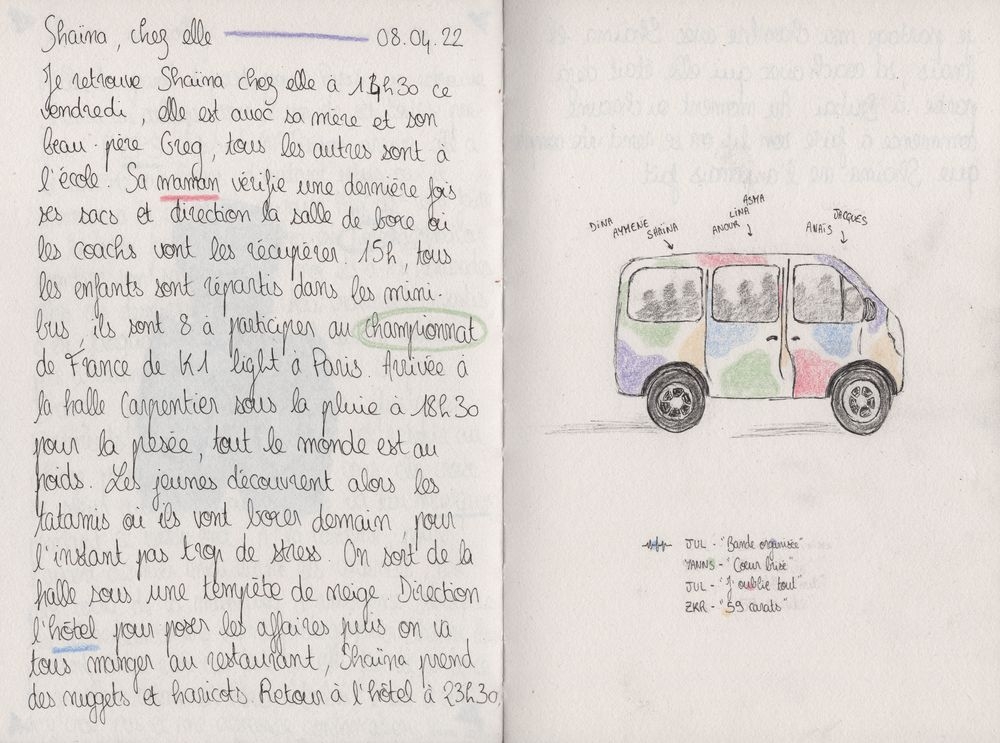 Shaïna, chez elle 08.04.22
Je retrouve Shaïna chez elle à 14h30 ce
vendredi, elle est avec sa mère et son
beau-père Greg, tous les autres sont à
l'école. Sa maman vérifie une dernière fois
ses sacs et direction la salle de boxe où
les coachs vont les récupérer. 15h, tous
les enfants sont répartis dans les mini-
bus, ils sont 8 à participer au championnat
de France de K1 light à Paris. Arrivée à
la halle Carpentier sous la pluie à 18h30
pour la pesée, tout le monde est au
poids. Les jeunes découvrent alors les
tatamis où ils vont boxer demain, pour
l'instant pas trop de stress. On sort de la
halle sous une tempête de neige. Direction
l'hôtel pour poser les affaires puis on va
tous manger au restaurant, Shaïna prend
des nuggets et haricots. Retour à l'hôtel à 23h30.
DINA
AYMENE
SHAÏNA
ANOUR
LINA
ASMA
ANAÏS
JACQUES
JUL - "Bande organisée"
YANNS - "Coeur brisé"
JUL - "J'oublie tout"
ZKR - "59 carats"